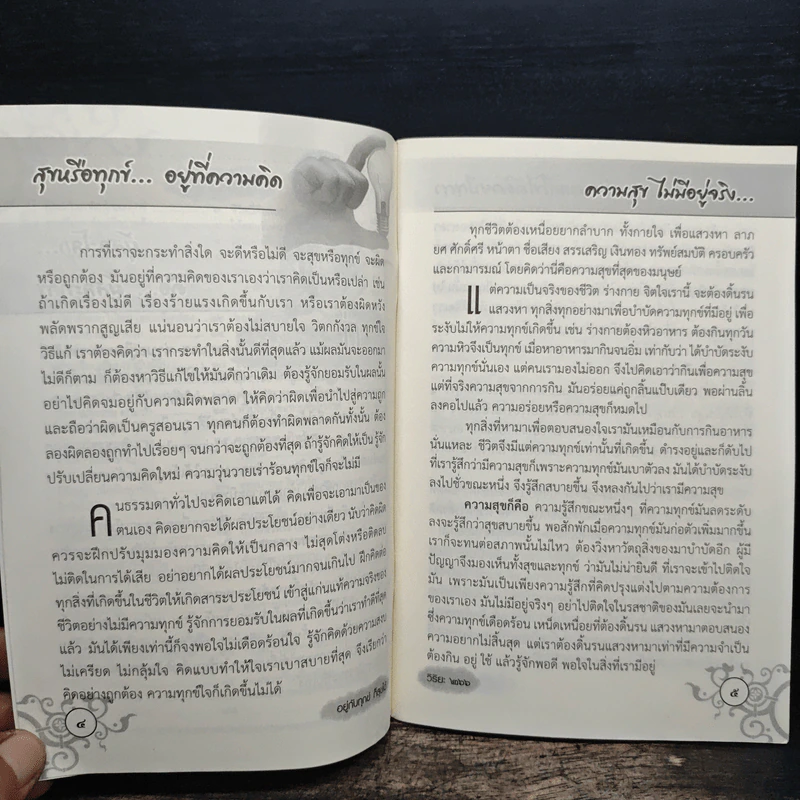 สุขหรือทุกข์... อยู่ที่ความคิด
การที่เราจะกระทำสิ่งใด จะดีหรือไม่ดี จะสุขหรือทุกข์ จะผิด
หรือถูกต้อง มันอยู่ที่ความคิดของเราเองว่าเราคิดเป็นหรือเปล่า เช่น
ถ้าเกิดเรื่องไม่ดี เรื่องร้ายแรงเกิดขึ้นกับเรา หรือเราต้องผิดหวัง
พลัดพรากสูญเสีย แน่นอนว่าเราต้องไม่สบายใจ วิตกกังวล ทุกข์ใจ
วิธีแก้ เราต้องคิดว่า เรากระทำในสิ่งนั้นดีที่สุดแล้ว แม้ผลมันจะออกมา
ไม่ดีก็ตาม ก็ต้องหาวิธีแก้ไขให้มันดีกว่าเดิม ต้องรู้จักยอมรับในผลนั้น
อย่าไปคิดจมอยู่กับความผิดพลาด ให้คิดว่าผิดเพื่อนำไปสู่ความถูก
และถือว่าผิดเป็นครูสอนเรา ทุกคนก็ต้องทำผิดพลาดกันทั้งนั้น ต้อง
ลองผิดลองถูกทำไปเรื่อยๆ จนกว่าจะถูกต้องที่สุด ถ้ารู้จักคิดให้เป็น รู้จัก
ปรับเปลี่ยนความคิดใหม่ ความวุ่นวายเร่าร้อนทุกข์ใจก็จะไม่มี
คนธรรมดาทั่วไปจะคิดเอาแต่ได้ คิดเพื่อจะเอามาเป็นของ
ตนเอง คิดอยากจะได้ผลประโยชน์อย่างเดียว นับว่าคิดผิด
ควรจะฝึกปรับมุมมองความคิดให้เป็นกลาง ไม่สุดโต่งหรือติดลบ
ไม่ติดในการได้เสีย อย่าอยากได้ผลประโยชน์มากจนเกินไป ฝึกคิดต่อ
ทุกสิ่งที่เกิดขึ้นในชีวิตให้เกิดสาระประโยชน์ เข้าสู่แก่นแท้ความจริงของ
ชีวิตอย่างไม่มีความทุกข์ รู้จักการยอมรับในผลที่เกิดขึ้นว่าเราทำดีที่สุด
แล้ว มันได้เพียงเท่านี้ก็จงพอใจไม่เดือดร้อนใจ รู้จักคิดด้วยความสงบ
ไม่เครียด ไม่กลุ้มใจ คิดแบบทำให้ใจเราเบาสบายที่สุด จึงเรียกว่า
คิดอย่างถูกต้อง ความทุกข์ใจก็เกิดขึ้นไม่ได้
๔
อยู่กับทุกข์ ก็สุขได้
ความสุข ไม่มีอยู่จริง...
ทุกชีวิตต้องเหนื่อยยากลำบาก ทั้งกายใจ เพื่อแสวงหา ลาภ
ยศ ศักดิ์ศรี หน้าตา ชื่อเสียง สรรเสริญ เงินทอง ทรัพย์สมบัติ ครอบครัว
และกามารมณ์ โดยคิดว่านี่คือความสุขที่สุดของมนุษย์
แต่ความเป็นจริงของชีวิต ร่างกาย จิตใจเรานี้ จะต้องดิ้นรน
แสวงหา ทุกสิ่งทุกอย่างมาเพื่อบำบัดความทุกข์ที่มีอยู่ เพื่อ
ระงับไม่ให้ความทุกข์เกิดขึ้น เช่น ร่างกายต้องหิวอาหาร ต้องกินทุกวัน
ความหิวจึงเป็นทุกข์ เมื่อหาอาหารมากินจนอิ่ม เท่ากับว่า ได้บำบัดระงับ
ความทุกข์นั่นเอง แต่คนเรามองไม่ออก จึงไปคิดเอาว่ากินเพื่อความสุข
แต่ที่จริงความสุขจากการกิน มันอร่อยแค่ถูกลิ้นแป๊บเดียว พอผ่านลิ้น
ลงคอไปแล้ว ความอร่อยหรือความสุขก็หมดไป
ทุกสิ่งที่หามาเพื่อตอบสนองใจเรามันเหมือนกับการกินอาหาร
นั่นแหละ ชีวิตจึงมีแต่ความทุกข์เท่านั้นที่เกิดขึ้น ดำรงอยู่และก็ดับไป
ที่เรารู้สึกว่ามีความสุขก็เพราะความทุกข์มันเบาตัวลง มันได้บำบัดระงับ
ลงไปชั่วขณะหนึ่ง จึงรู้สึกสบายขึ้น จึงหลงกันไปว่าเรามีความสุข
ความสุขก็คือ ความรู้สึกขณะหนึ่งๆ ที่ความทุกข์มันลดระดับ
ลงจะรู้สึกว่าสุขสบายขึ้น พอสักพักเมื่อความทุกข์มันก่อตัวเพิ่มมากขึ้น
เราก็จะทนต่อสภาพนั้นไม่ไหว ต้องวิ่งหาวัตถุสิ่งของมาบำบัดอีก ผู้มี
ปัญญาจึงมองเห็นทั้งสุขและทุกข์ ว่ามันไม่น่ายินดี ที่เราจะเข้าไปติดใจ
มัน เพราะมันเป็นเพียงความรู้สึกที่คิดปรุงแต่งไปตามความต้องการ
ของเราเอง มันไม่มีอยู่จริงๆ อย่าไปติดใจในรสชาติของมันเลยจะนำมา
ซึ่งความทุกข์เดือดร้อน เหน็ดเหนื่อยที่ต้องดิ้นรน แสวงหามาตอบสนอง
ความอยากไม่สิ้นสุด แต่เราต้องดิ้นรนแสวงหามาเท่าที่มีความจำเป็น
ต้องกิน อยู่ ใช้ แล้วรู้จักพอดี พอใจในสิ่งที่เรามีอยู่
วิริยะ ๒๗๖๖
๕